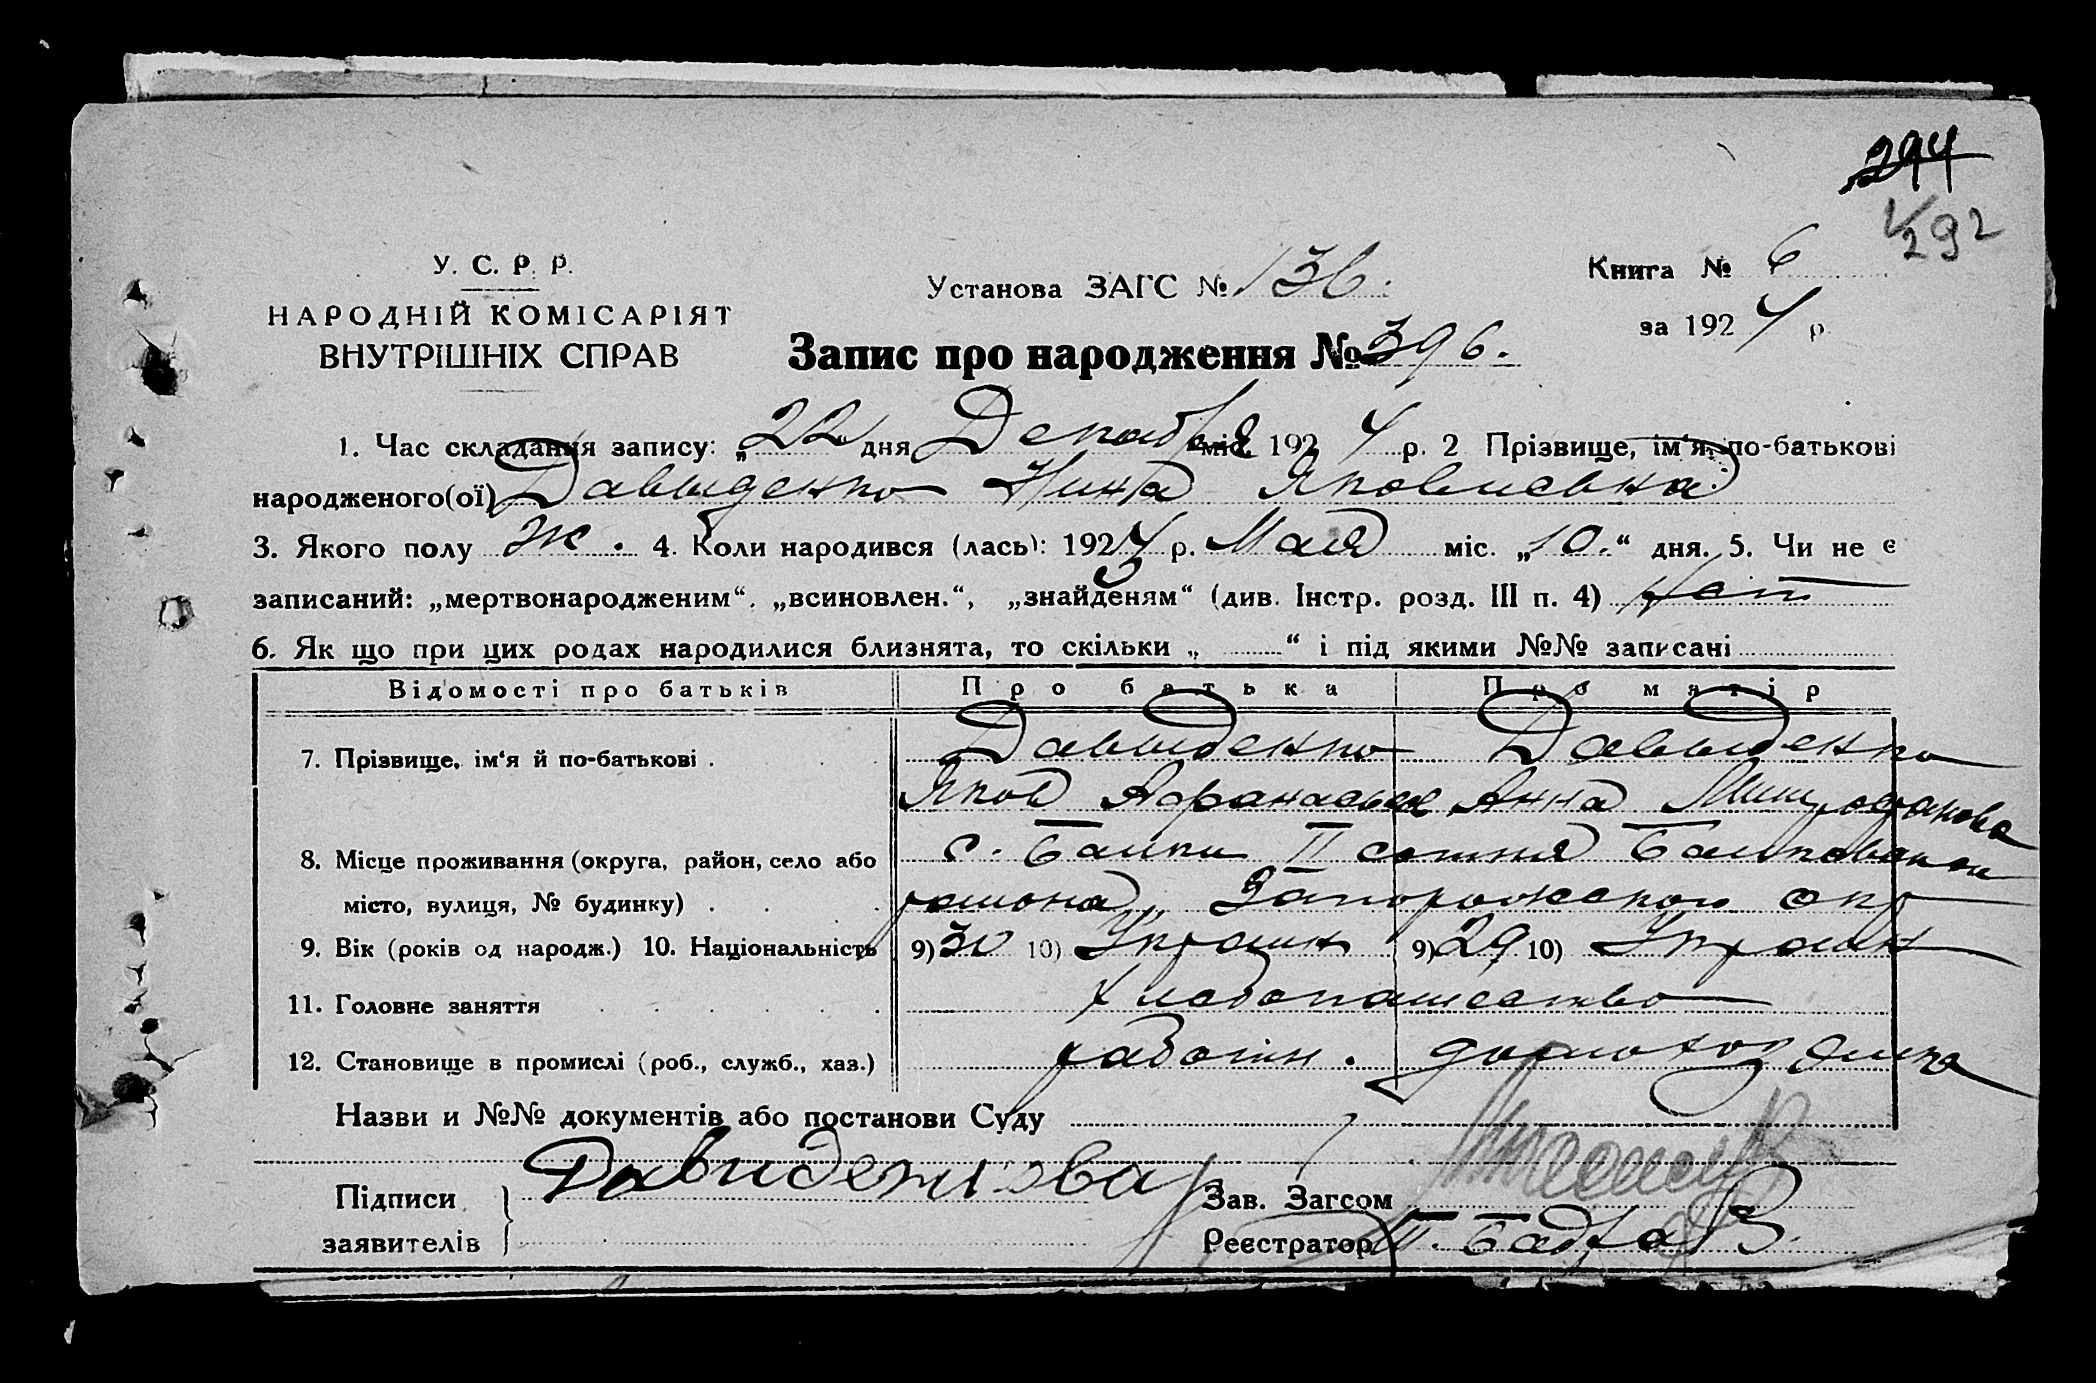 294
292
У. С. Р. Р.
НАРОДНІЙ КОМІСАРІЯТ
ВНУТРІШНІХ СПРАВ
Установа ЗАГС № 136.
Книга № 6
за 1924 р.
Запис про народження № 396.
1. Час складання запису: „22 дня Декабря міс. 1924 р. 2 Прізвище, ім'я, по-батькові
народженого(ої) Давыденко Нина Яковлевна
3. Якого полу ж. 4. Коли народився (лась): 1924 р. Мая міс. „10.“ дня. 5. Чи не є
записаний: „мертвонародженим“, „всиновлен.“, „знайденям“ (див. Інстр. розд. III п. 4) Нет
6. Як що при цих родах народилися близнята, то скільки „ “ і під якими №№ записані
Відомості про батьків Про батька Про матір
7. Прізвище, ім'я й по-батькові . Давыденко Давыденко
Яков Афанасьев Анна Митрофанова
8. Місце проживання (округа, район, село або с. Балки II сотня Балковского
місто, вулиця, № будинку) . района, Запорожского окр
9. Вік (років од народж.) 10. Національність 9) 30 10) Украин 9) 29 10) Украин
11. Головне заняття хлебопашество
12. Становище в промислі (роб., служб., хаз.) работн. домохозяйка
Назви и №№ документів або постанови Суду
Підписи
заявителів
Зав. Загсом
Реєстратор